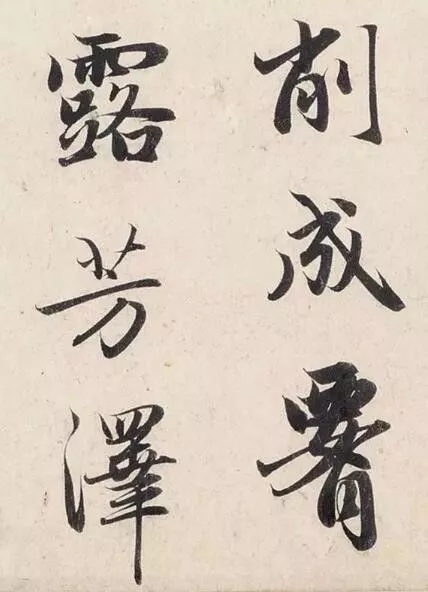 削成腰
露芳澤